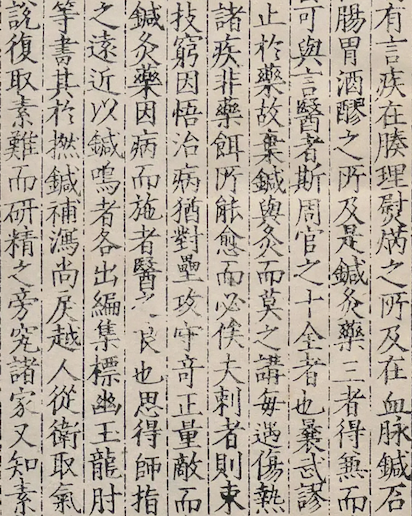 有言疾在腠理熨焫之所及在血脉鍼石
腸胃酒醪之所及是鍼灸藥三者得兼而
可與言醫者斯周官之十全者也曩武謬
止於藥故棄鍼與灸而莫之講每遇傷熱
諸疾非藥餌所能愈而必俟夫刺者則束
技窮因悟治病猶對壘攻守竒正量敵而
鍼灸藥因病而施者醫之良也思得師指
之遠近以鍼鳴者各出編集標幽玉龍肘
等書其於撚鍼補瀉尚戾越人從衛取氣
說復取素難而研精之旁究諸家又知素